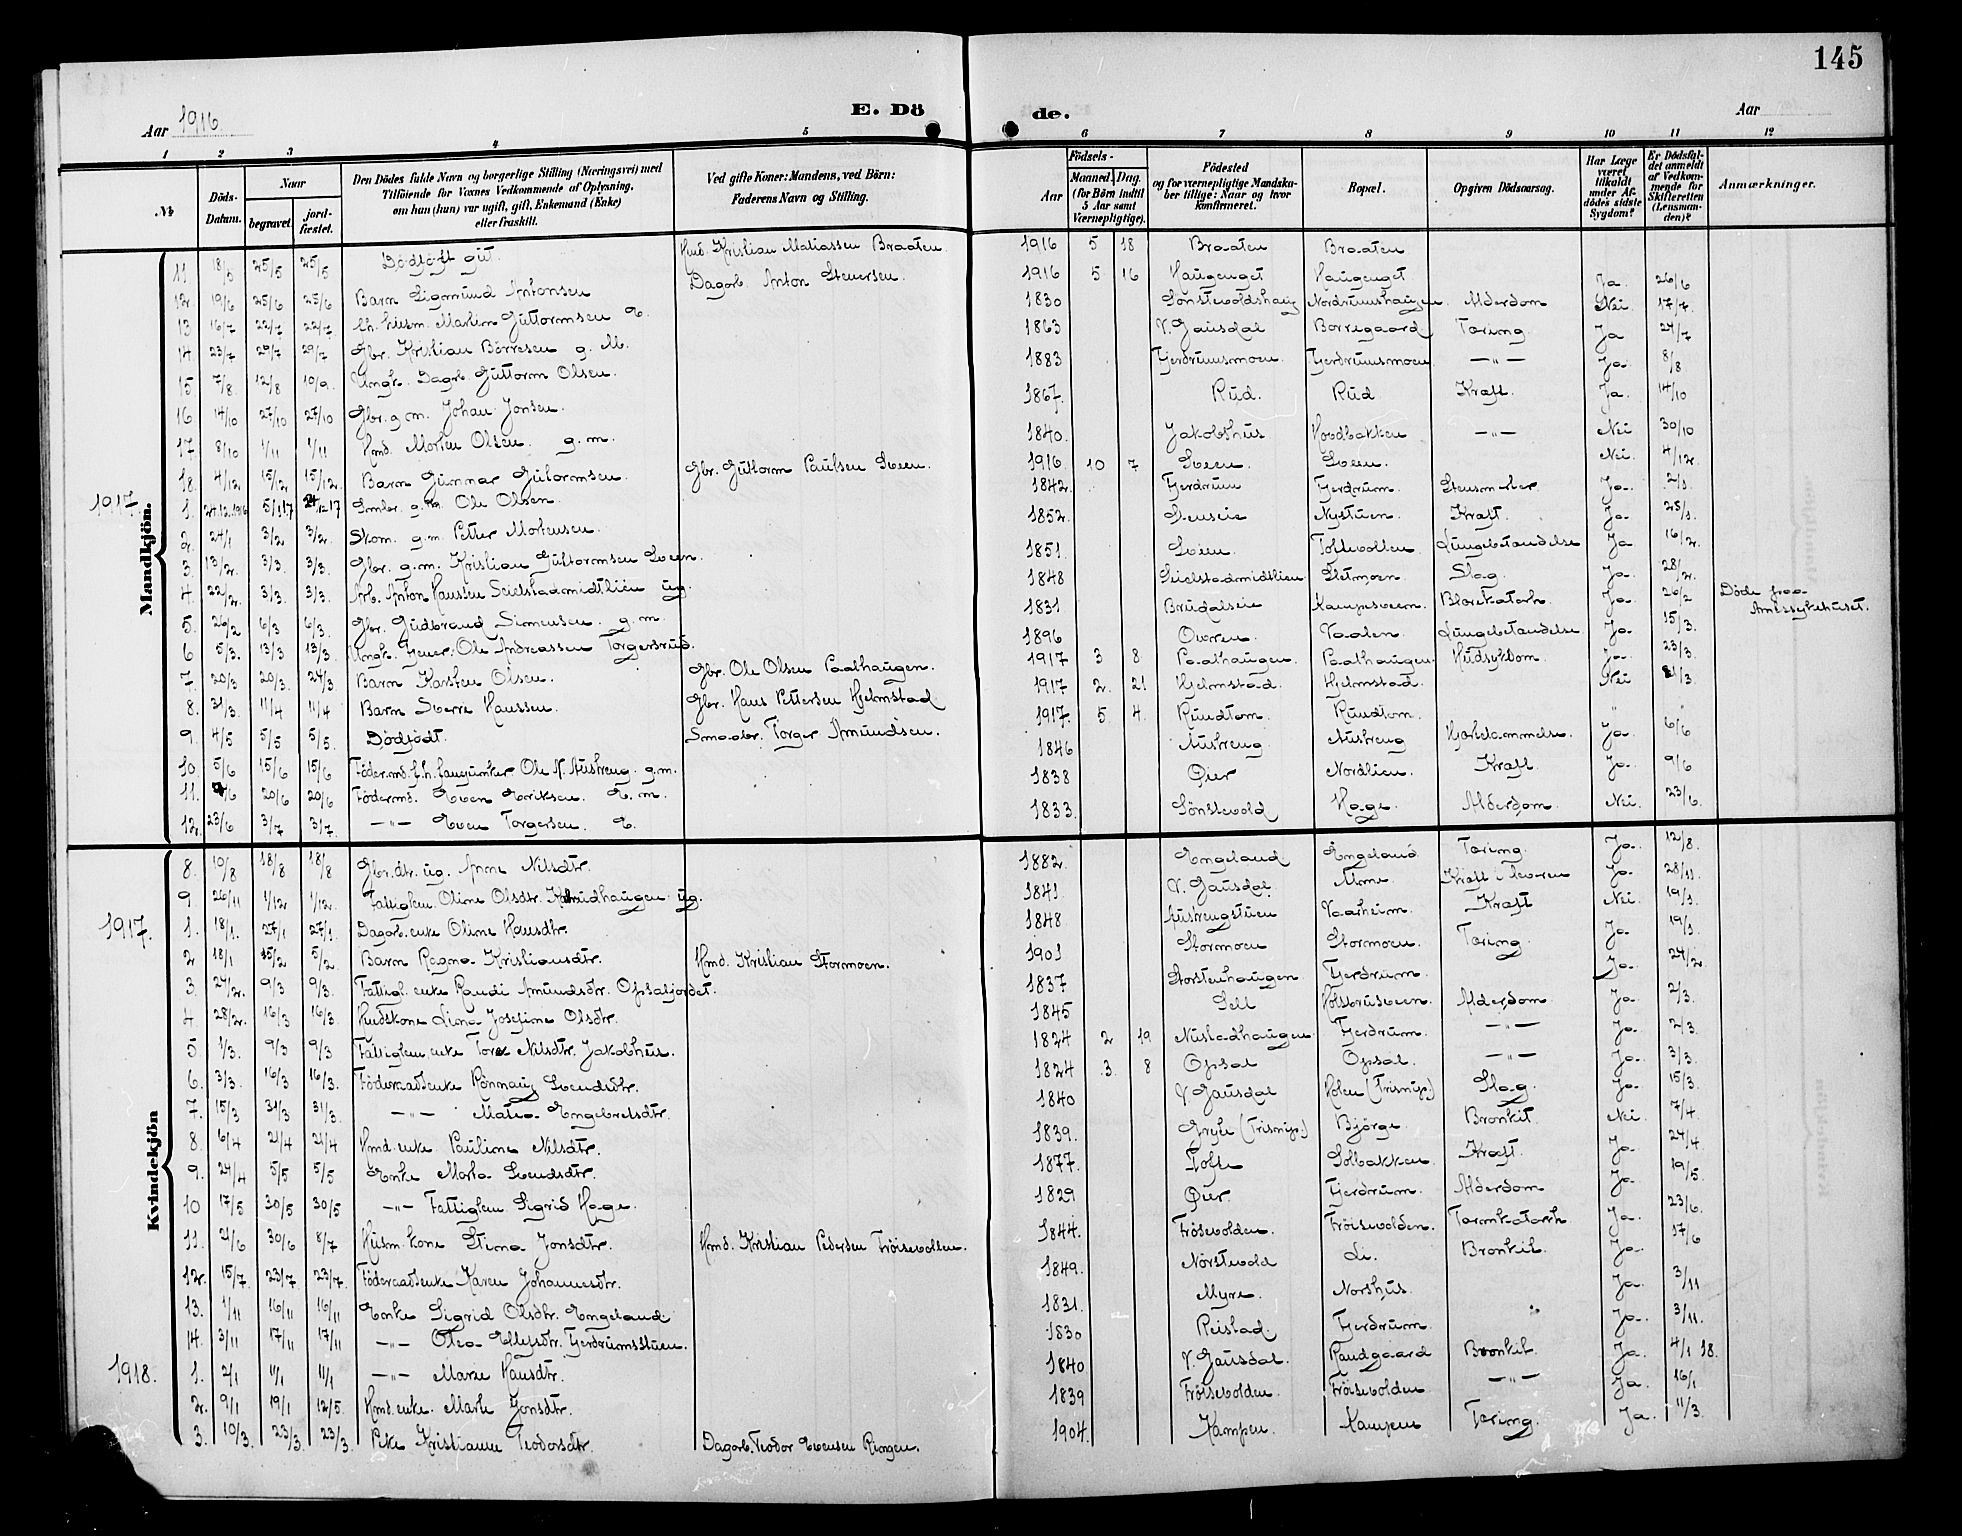 145
Aar 1916
E. Dö
de.
Aar
1 2 3 4 5 6 7 8 9 10 11 12
№
Döds-Datum.
Naar
begravet
jord-fæstet.
Den Dödes fulde Navn og borgerlige Stilling (Næringsvei) med Tilföiende for Voxnes Vedkommende af Oplysning, om han (hun) var ugift, gift, Enkemand (Enke) eller fraskilt.
Ved gifte Koner: Mandens, ved Börn: Faderens Navn og Stilling.
Födsels-
Aar
Maaned. Dag.
(for Börn indtil 5 Aar samt Værnepligtige).
Födested og for værnepligtige Mandskaber tillige: Naar og hvor konfirmeret.
Bopæl.
Opgiven Dödsaarsag.
Har Læge været tilkaldt under Afdödes sidste Sygdom?
Er Dödsfaldet anmeldt af Vedkommende for Skifteretten (Lensmanden)?
Anmærkninger.
Mandkjön.
11 18/5 25/5 25/5 Dödfödt gut. Hmd. Kristian Matiassen Braaten. 1916 5 18 Braaten Braaten
12. 19/6 25/6 25/6 Barn Sigmund Antonsen Dagarb. Anton Stenersen. 1916 5 16 Haugenget Haugenget Ja. 26/6
13 16/7 22/7 22/7 Martin Guttormsen E. 1830 Sönstevoldshaug Nordrumshaugen. Alderdom Nei. 17/7.
14 23/7 29/7 29/7 Gbr. Kristian Börresen g. M. 1863 V. Gausdal Borregaard Tæring. Ja 24/7
15 7/8 12/8 10/9. Ungk. Dagarb. Guttorm Olsen. 1883 Fjerdrumsmoen. Fjerdrumsmoen —"— Ja 8/8
16 14/10 27/10 27/10 Gbr. g. m. Johan Jonsen. 1867. Rud. Rud Kræft. Ja. 14/10
17 8/10 1/11 1/11 Hmd. Morten Olsen. g. m. 1840. Jakobshus Hovdbakken —"— Nei 30/10
18. 4/12 15/12 15/12. Barn Gunnar Gutormsen. Gbr. Guttorm Paulsen Sveen. 1916. 10 7 Sveen. Sveen. Nei. 4/12.
1917.
1. 24.12.1916 5/1 17 Smbr. g. m. Ole Olsen 1842. Fjerdrum Fjerdrum. Ja. 2/1.
2. 24/1 3/2 3/2. Skom. g. m. Petter Mortensen. 1852. Nystuen. Kræft. Ja. 25/1.
3. 13/2. 3/3. 3/3. Gbr. g. m. Kristian Guttormsen Sveen. 1851. Sveen. Toftevollen Lungebetændelse Ja 16/2.
4. 22/2. 3/3. 3/3. Arb. Anton Hanssen Seielstadmidtlien ug. 1848 Seielstadmidtlien. Sletmoen. Slag. Ja. 28/2.
5. 26/2 6/3 6/3. Gbr. Gudbrand Simensen. g. m. 1831 Brudalseie Kampesveen. Blærekatarh. Ja. 26/2 Döde paa Amtssykehuset.
6 5/3. 13/3 13/3. Ungk. Ole Andreassen Torgersrud. 1896 Overen. Vaalen. Lungebetændelse. Ja. 15/3.
7. 20/3 20/3. 24/3 Barn Karsten Olsen. Gbr. Ole Olsen Paalhaugen. 1917 3 8 Paalhaugen. Paalhaugen. Hudsykdom. Ja. 23/3.
8. 31/3. 11/4 11/4 Barn Sverre Hanssen. Gbr. Hans Pettersen Hjelmstad 1917 2. 21 Hjelmstad. Hjelmstad. Nei 31/3.
9. 4/5 5/5 5/5. Dödfödt. Smaabr. Torger Amundsen. 1917. 5 4. Rundtom. Rundtom. " "
10. 5/6 15/6 15/6 Föder.md. Ole N. Austreng. g. m. 1846 Austreng Austreng Hjertelammelse. Ja. 6/6
11. 20/6 20/6 Födermd. Even Eriksen. E. m. 1838 Öier Nordlien. Kræft. Ja. 9/6
12. 23/6 3/7 3/7. —"— Even Torgersen. E. 1833. Sönstevold Hage. Alderdom. Nei. 23/6.
Kvindekjön
8. 10/8 18/8 18/8 Gbr.dtr. ug. Anne Nilsdtr. 1882. Engeland Engeland Tæring. Ja. 12/8.
9. 26/11 1/12 1/12. Fattiglem. Oline Olsdtr. ug. 1841. V. Gausdal. Kræft i leveren Ja. 28/11.
1917.
1. 18/1. 27/1 27/1. Dagarb. enke Oline Hansdtr. 1848 Austrengstuen Vaarheim. Kræft Nei. 19/1.
2 18/1 5/2 Barn Ragna Kristiansdtr. Hmd. Kristian Stormoen. 1901 Stormoen Stormoen. Tæring. Ja. 19/1
3. 24/2. 9/3 9/3. Fattigl. enke Randi Amundsdtr. Opsaljordet. 1837 Storstenhaugen Fjerdrum. Ja. 24/2.
4. 28/2. 16/3 16/3. Husdskone Lina Josefine Olsdtr. 1845 Sell Alderdom Ja. 2/3.
5. 1/3. 9/3 9/3 Fattiglem enke Nilsdtr. Jakobhus. 1824 2 19 Nustadhaugen Fjerdrum. —"— Ja. 2/3.
6. 3/3. 16/3 16/3. Föderaadsenke Rönnaug 1824 3. 8 Opsal Opsal. —"— Ja. 3/3.
7. 15/3 31/3 31/3. —"— Matea Engebretsdtr. 1840 V. Gausdal Holen (Frisnip.) Slag. Ja. 15/3.
8 6/4 21/4 21/4 Hmd. enke Pauline Nilsdtr. 1839. Bjørge. Bronkit. Nei. 7/4.
9. 24/4 5/5 5/5 Enke Marta 1877. Tofte Solbakken. Kræft. Ja. 24/4
10 17/5 30/5 30/5 —"— Fattiglem Sigrid Hage. 1829 Öier. Fjerdrum. Alderdom Ja. 19/5
11. 21/6 30/6 8/7 Husm. kone Stina Jonsdtr. Hmd. Kristian Pedersen Fröisevollen. 1844. Frösevolden. Fröisevolden. Tarmkatarrh Ja. 23/6.
12. 15/7. 23/7 23/7. Föderaadsenke Karen Johannesdtr. 1849. Nörstevold Li. Bronkit. Ja. 17/6
13. 1/11 16/11 16/11 Enke Sigrid Olsdtr. Engeland 1831. Myre. Norshus. Ja. 3/11
14. 3/11 17/11 17/11 —"— Fjerdrumsstuen. 1830 Reistad. Fjerdrum. Ja. 3/11.
1918.
1. 2/1 11/1 11/1 —"— Marie Hansdtr. 1840 V. Gausdal. Raudgaard Bronkit Ja. 4/1 18.
2. 9/1 19/1 12/5. Hmd. enke. Marte Jonsdtr. 1839 Fröisevolden Fröisevolden —"— Ja. 16/1
3. 10/3. 23/3. 23/3. Pike Kristianne Teodorsdtr. Dagarb. Teodor Evensen Ringen. 1904. Kampen. Kampen Tæring. Ja. 11/3.